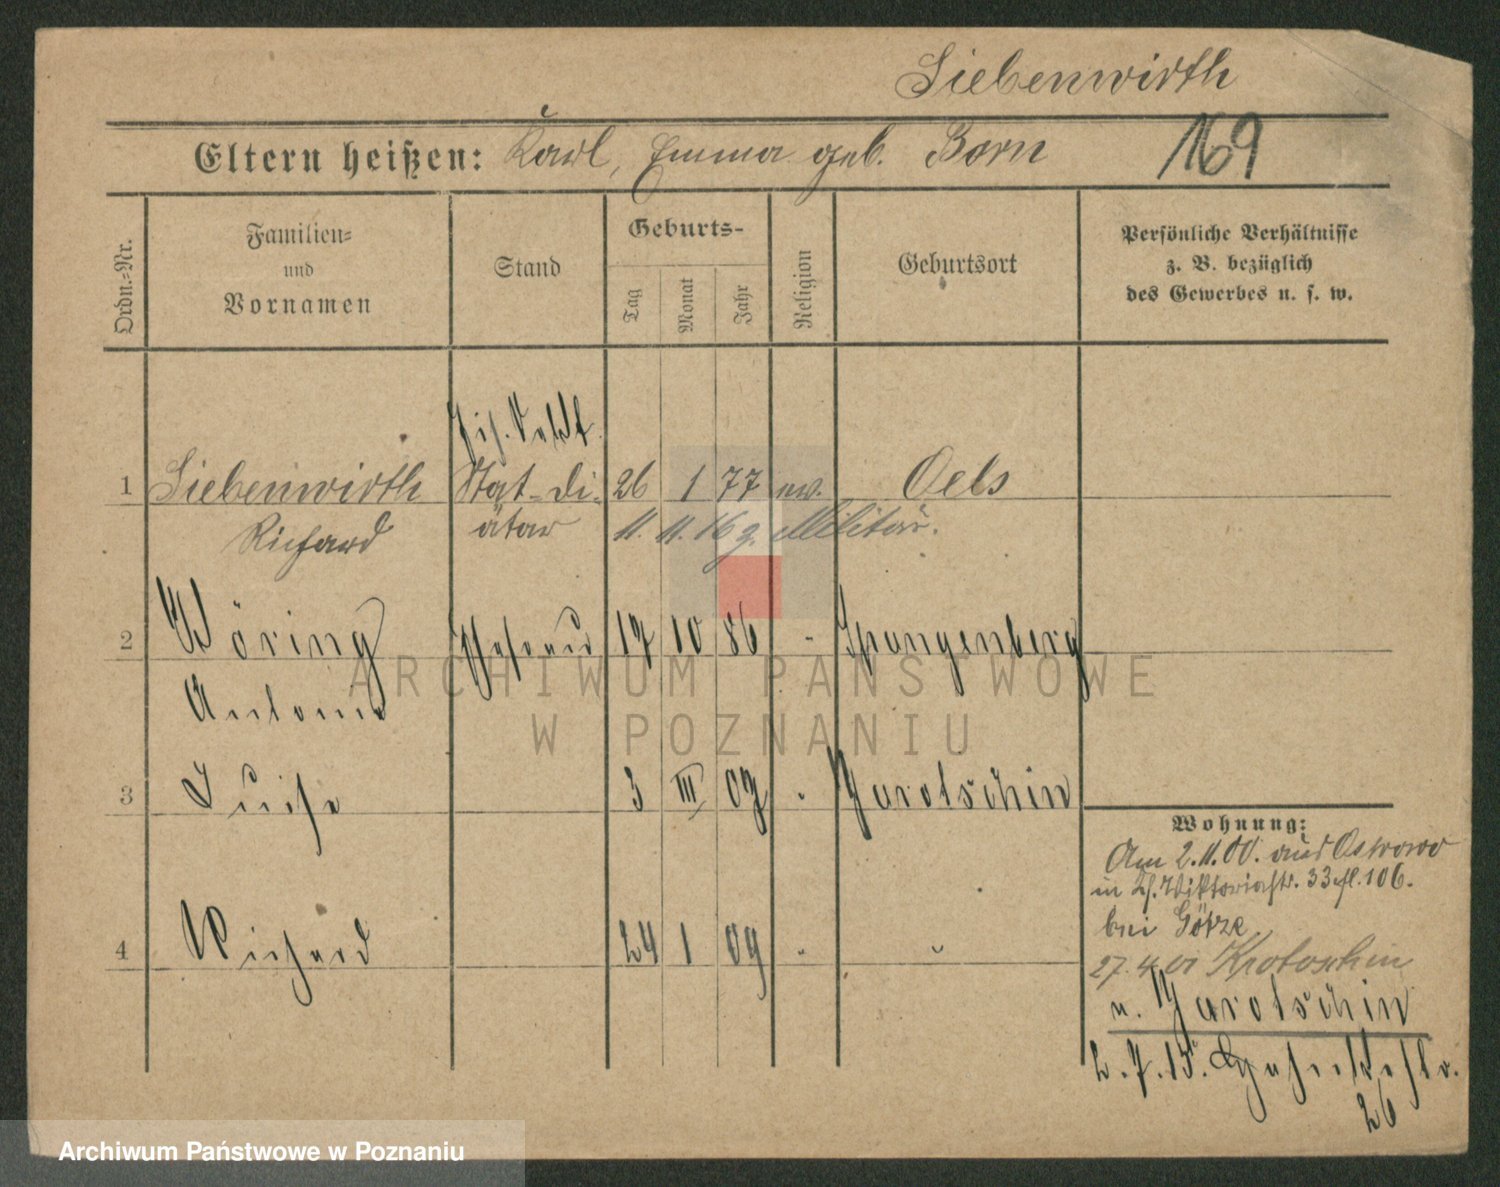 Siebenwirth
Eltern heißen: Karl, Emma geb. Born 169
Ordn.-Nr.
Familien-
und
Vornamen
Stand
Geburts-
Tag
Monat
Jahr
Religion
Geburtsort
Persönliche Verhältnisse
z. B. bezüglich
des Gewerbes u. s. w.
1 Siebenwirth Stat-Di- 26 1 77 ev. Oels
Richard ätar 11. 11. 16 z. Militär.
2 Wöring Ehefrau 17 10 86 " Spangenberg
Antonie
3 Luise 3 III 07 " Jarotschin
4 Richard 24 1 09 " "
Wohnung:
Am 2.11.00. aus Ostrowo
in Viktoriastr. 33 106.
bei Götze
27. 4 01 Krotoschin
u. Jarotschin
2.7.15.
26
ARCHIWUM PAŃSTWOWE
W POZNANIU
Archiwum Państwowe w Poznaniu